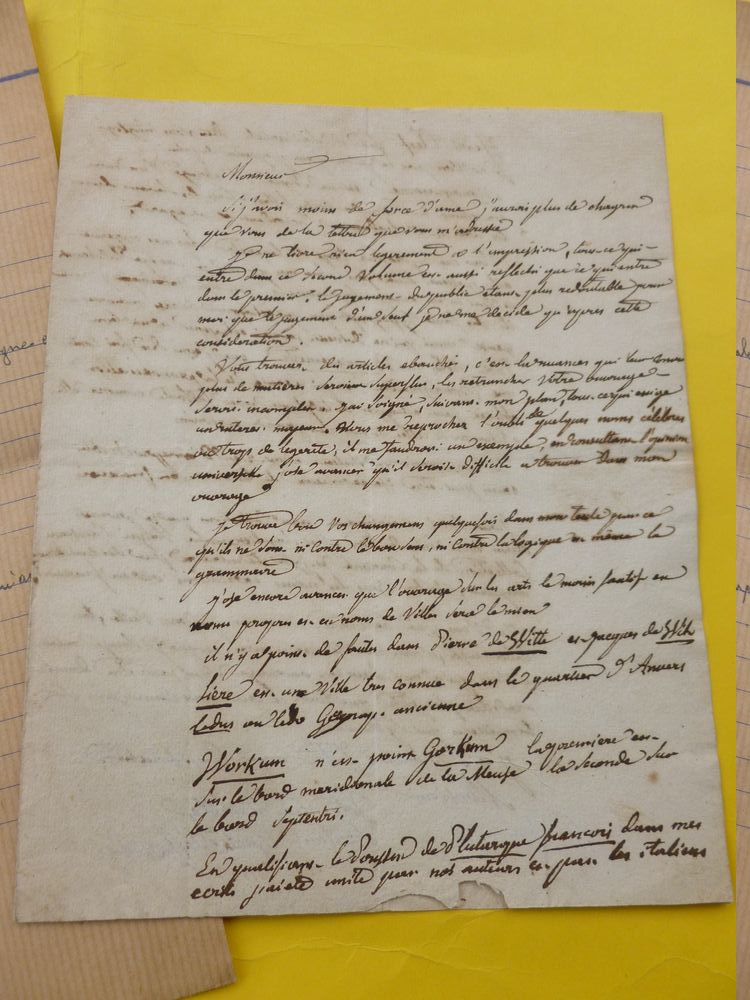 Monsieur
Si j'avois moins de force d'ame j'aurois plus de chagrin
que vous de la lettre que vous m'adressé
je ne livre rien legerement a l'impression, tous ce qui
entre dans ce second Volume est aussi reflechi que ce qui entre
dans le premier. le jugement du public etant plus redoutable pour
moi que le jugement d'un seul je ne me decide qu'apres cette
consideration.
Vous trouvez des articles ebauchés, c'est les nuances qui
plus de matieres seroient superflus, les retrancher votre ouvrage
seroit incomplet. j'ai soigné, suivant mon plan, tous ce qui exige
un interes majeur. Vous me reprochez l'oubli de quelques noms célebres
ou trop de legereté, il me faudroit un exemple, en consultant l'opinion
universele j'ose avancer qu'il seroit difficile a trouver dans mon
ouvrage
Je trouve bon vos changemens quelquefois dans mon texte parce
qu'ils ne sont ni contre le bon sens, ni contre la logique ni même la
grammaire
j'ose encore avancer que l'ouvrage sur les arts le moin fautif en
noms propres et en noms de Villes sera le mien
il n'y a point de fautes dans Pierre de Witt et Jacques de Wit
Liere est une Ville tres connue dans le quartier d'Anvers
Ledus ou Ledo Geograp. ancienne
Workum n'est point Gorkum la premiere est
sur le bord meridionale de la Meuse la seconde sur
le bord septentri.
En qualifiant le Poussin de Plutarque françois dans mes
ecrits j'ai eté imité par nos auteurs et par les italiens